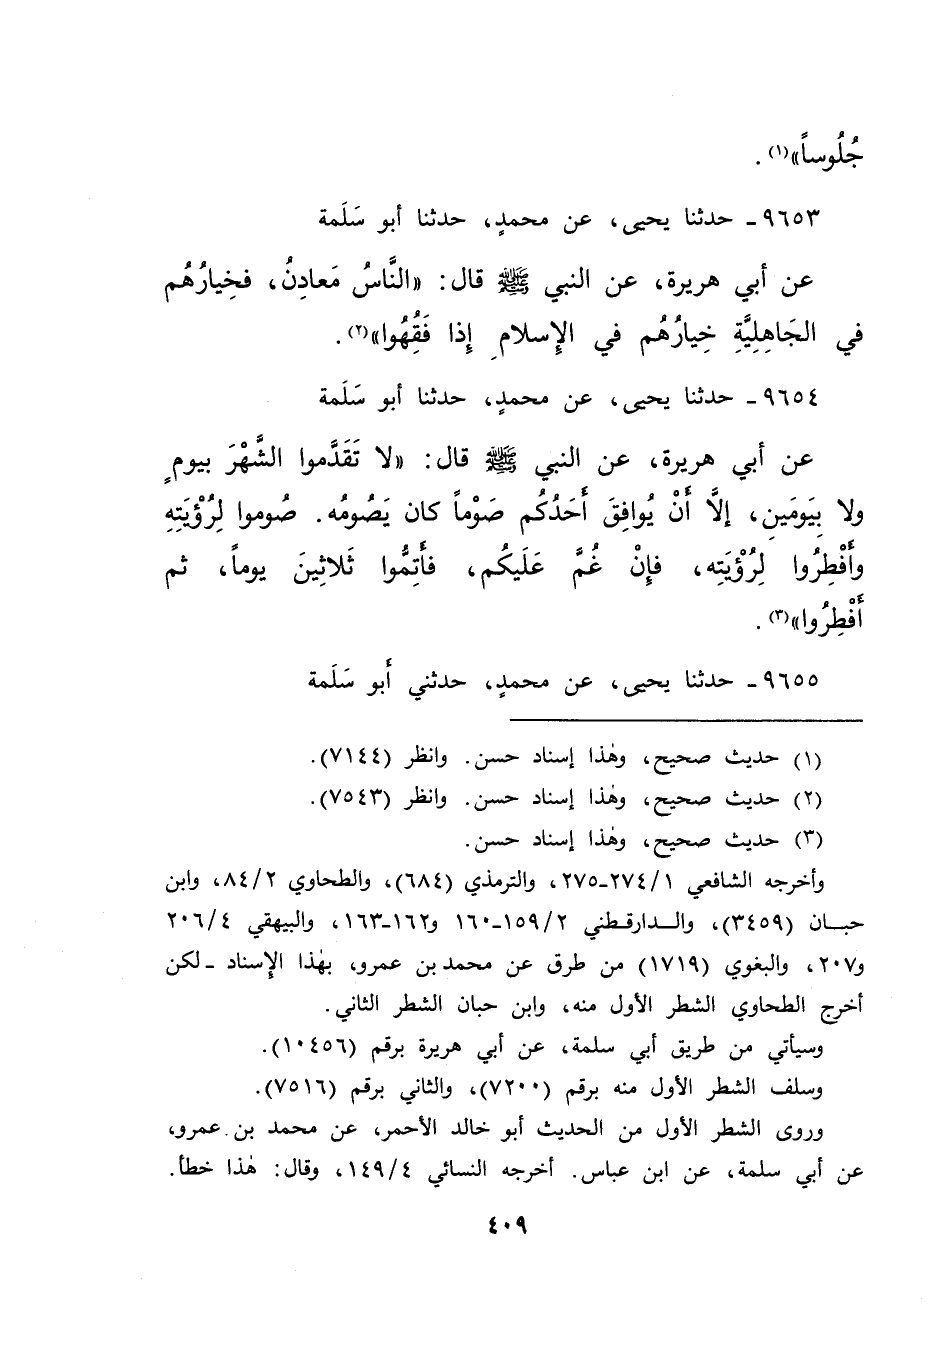 جُلُوساً»(١) .
٩٦٥٣ـ حدثنا يحيى، عن محمدٍ، حدثنا أبو سَلَمة
عن أبي هريرة، عن النبي ﷺ قال: «النَّاسُ مَعادِنُ، فخِيارُهُم
في الجَاهِليَّةِ خِيارُهُم في الإِسلامِ إِذا فَقُهُوا»(٢) .
٩٦٥٤ـ حدثنا يحيى، عن محمدٍ، حدثنا أبو سَلَمة
عن أبي هريرة، عن النبي ﷺ قال: «لا تَقَدَّموا الشَّهْرَ بيومٍ
ولا بِيَومَينِ، إلَّا أَنْ يُوافِقَ أَحَدُكُم صَوْماً كان يَصُومُه. صُوموا لِرُؤْيَتِهِ
وأَفْطِرُوا لِرُؤْيَتِه، فإِنْ غُمَّ عَلَيكُم، فأَتِمُّوا ثَلاثِينَ يوماً، ثم
أَفْطِرُوا»(٣) .
٩٦٥٥ـ حدثنا يحيى، عن محمدٍ، حدثني أَبو سَلَمة
(١) حديث صحيح، وهٰذا إسناد حسن. وانظر (٧١٤٤).
(٢) حديث صحيح، وهٰذا إسناد حسن. وانظر (٧٥٤٣).
(٣) حديث صحيح، وهٰذا إسناد حسن.
وأخرجه الشافعي ٢٧٤/١ـ٢٧٥، والترمذي (٦٨٤)، والطحاوي ٨٤/٢، وابن
حبـان (٣٤٥٩)، والـدارقـطني ١٥٩/٢ـ١٦٠ و١٦٢ـ١٦٣، والبيهقي ٢٠٦/٤
و٢٠٧، والبغوي (١٧١٩) من طرق عن محمد بن عمرو، بهٰذا الإِسناد ـ لكن
أخرج الطحاوي الشطر الأول منه، وابن حبان الشطر الثاني.
وسيأتي من طريق أبي سلمة، عن أبي هريرة برقم (١٠٤٥٦).
وسلف الشطر الأول منه برقم (٧٢٠٠)، والثاني برقم (٧٥١٦).
وروى الشطر الأول من الحديث أبو خالد الأحمر، عن محمد بن عمرو،
عن أبي سلمة، عن ابن عباس. أخرجه النسائي ١٤٩/٤، وقال: هٰذا خطأ.
٤٠٩